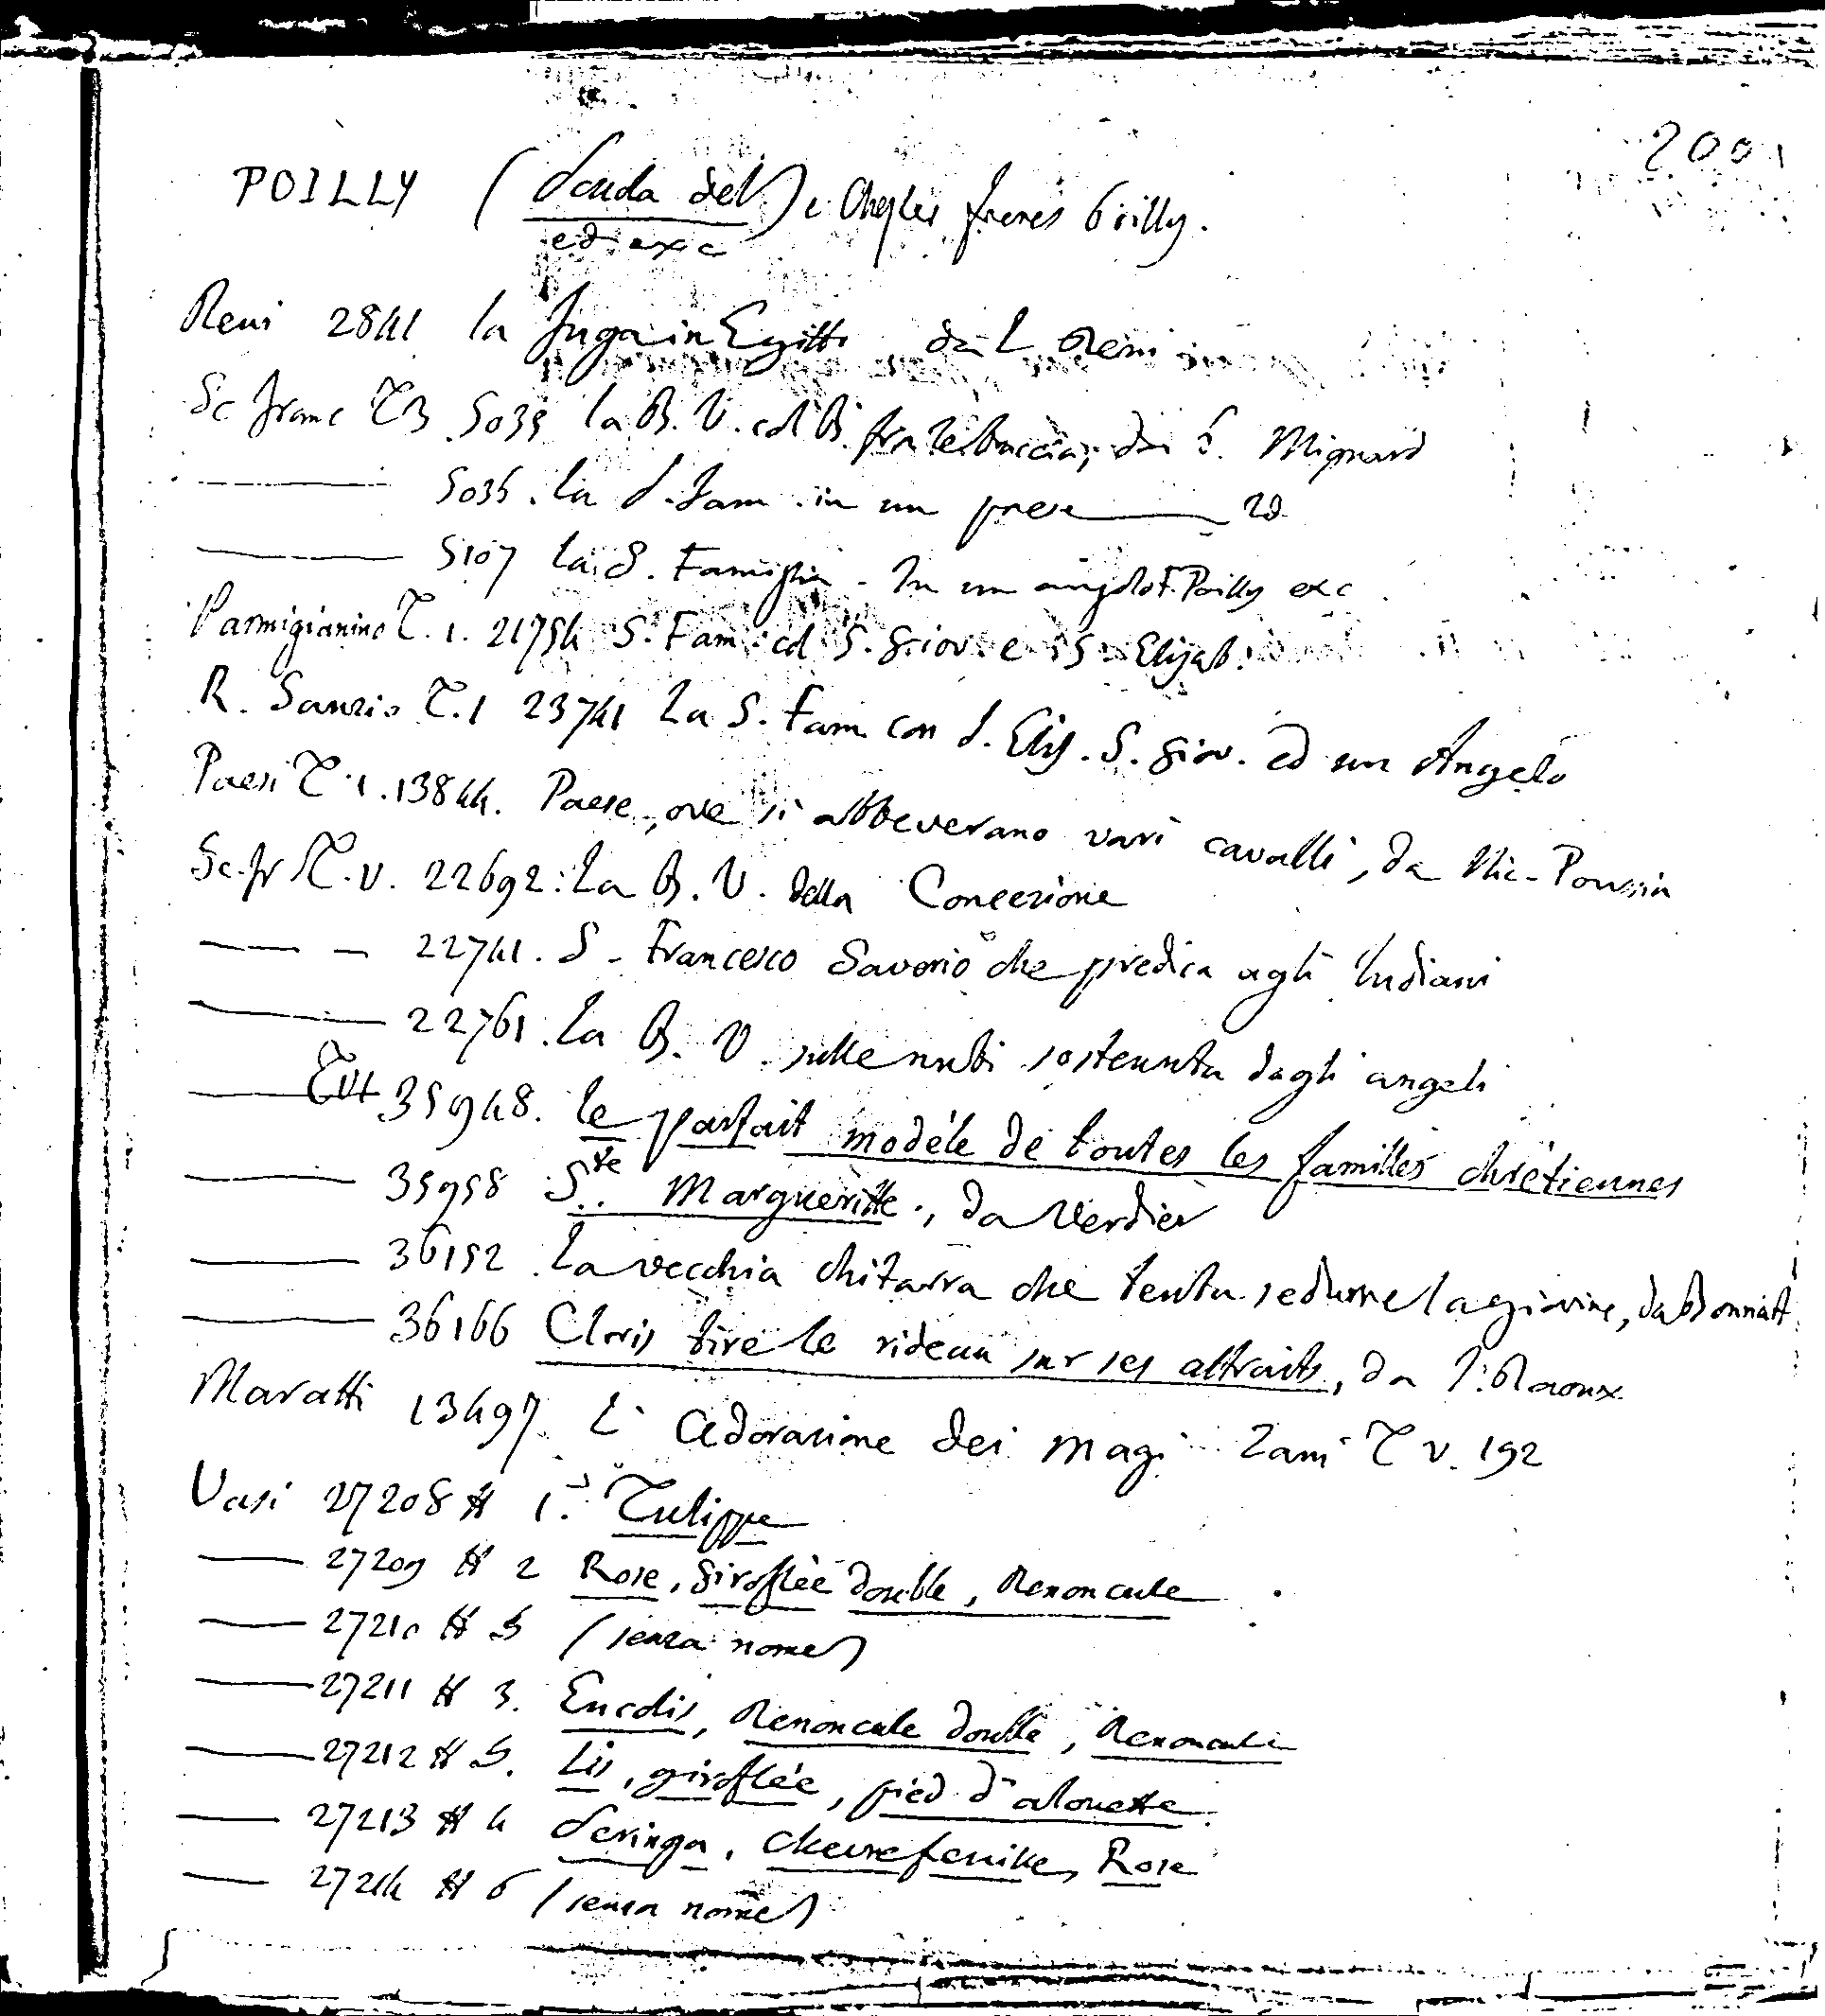 2001
POILLY (Scuola del) e Charles frères Poilly.
ed exc
Reni 2841 la fuga in Egitto da L Reni
Sc franc T3 5035 la B. V. col B. fra le braccia, da P. Mignard
5036. La S. Fam. in un paese id
5107 La S. Famiglia - In un angolo F. Poilly exc
Parmigianino T. 1. 21754 S. Fam. col S. Giov. e S. Elisab.
R. Sanzio T. 1 23741 La S. Fam con S. Elis. S. Giov. ed un Angelo
Paesi T. 1. 13844. Paese, ove si abbeverano vari cavalli, da Nic. Poussin
Sc. fr T. V. 22692. La B. V. della Concezione
22741. S. Francesco Saverio che predica agli Indiani
22761. La B. V. sulle nubi sostenuta dagli angeli
35948. le parfait modèle de toutes les familles chrétiennes
35958 Ste Margueritte., da Verdier
36152 La vecchia chitarra che tenta sedurre la giovine, da Bonnart
36166 Cloris tire le rideau sur ses attraits, da J. Raoux
Maratti 13497 L'Adorazione dei magi Zani T V. 192
Vasi 27208 # 1. Tulippe
27209 # 2 Rose, Giroflée double, Renoncule
27210 # 5 (senza nome)
27211 # 3. Encolis, Renoncule double, Renoncule
27212 # 5. Lis, giroflée, pied d'alouette
27213 # 4 Seringa, Chevrefeuille, Rose
27214 # 6 (senza nome)